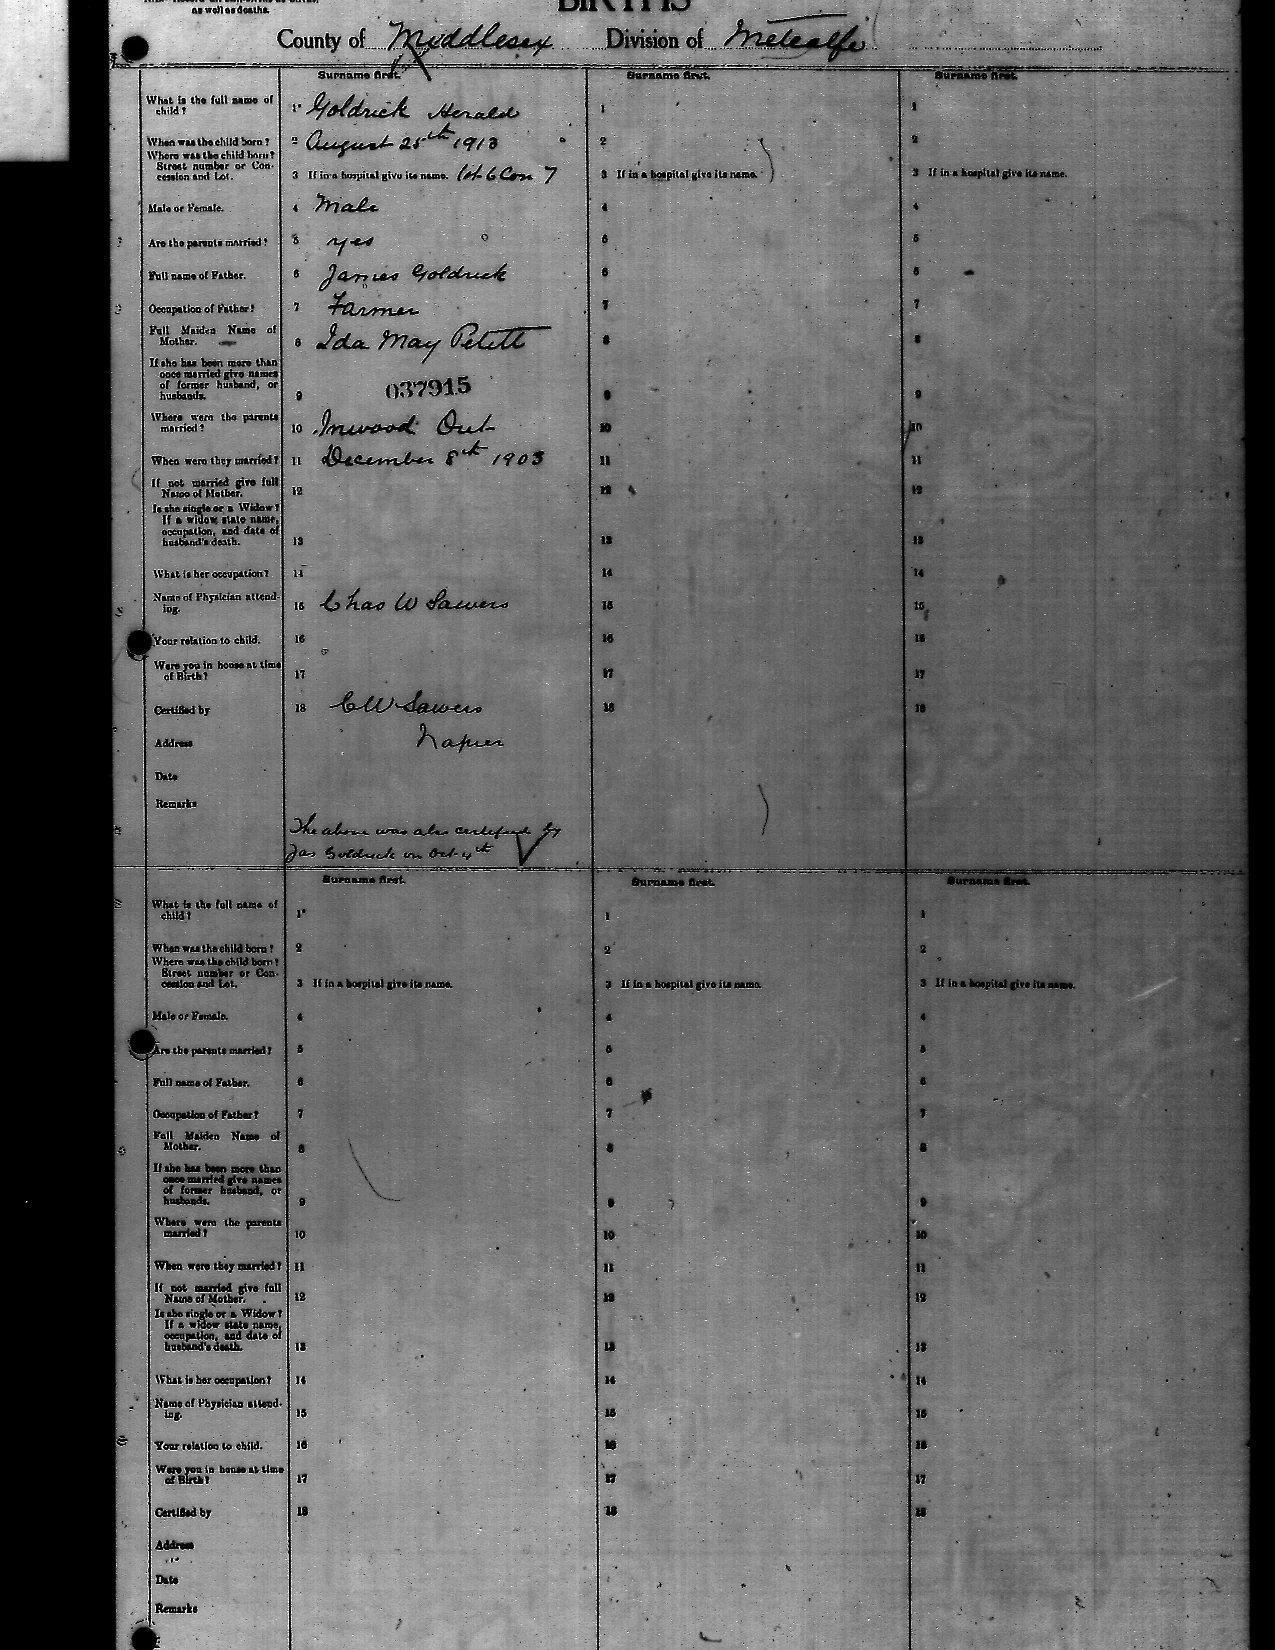 as well as deaths.
BIRTHS
County of Middlesex Division of Metcalfe
Surname first. Surname first. Surname first.
What is the full name of
child? 1 Goldrick Herald 1 1
When was the child born? 2 August 25th 1913 2 2
Where was the child born?
Street number or Con-
cession and Lot. 3 If in a hospital give its name. lot 6 Con 7 3 If in a hospital give its name. 3 If in a hospital give its name.
Male or Female. 4 Male 4 4
Are the parents married? 5 yes 5 5
Full name of Father. 6 James Goldrick 6 6
Occupation of Father? 7 Farmer 7 7
Full Maiden Name of
Mother. 8 Ida May Petett 8 8
If she has been more than
once married give names
of former husband, or
husbands. 9 037915 9 9
Where were the parents
married? 10 Inwood Ont 10 10
When were they married? 11 December 8th 1903 11 11
If not married give full
Name of Mother. 12 12 12
Is she single or a Widow?
If a widow, state name,
occupation, and date of
husband's death. 13 13 13
What is her occupation? 14 14 14
Name of Physician attend-
ing. 15 Chas W Sawers 15 15
Your relation to child. 16 16 16
Were you in house at time
of Birth? 17 17 17
Certified by 18 C W Sawers 18 18
Address Napier
Date
Remarks
The above was also certified by
Jas Goldrick on Oct 4th
Surname first. Surname first. Surname first.
What is the full name of
child? 1 1 1
When was the child born? 2 2 2
Where was the child born?
Street number or Con-
cession and Lot. 3 If in a hospital give its name. 3 If in a hospital give its name. 3 If in a hospital give its name.
Male or Female. 4 4 4
Are the parents married? 5 5 5
Full name of Father. 6 6 6
Occupation of Father? 7 7 7
Full Maiden Name of
Mother. 8 8 8
If she has been more than
once married give names
of former husband, or
husbands. 9 9 9
Where were the parents
married? 10 10 10
When were they married? 11 11 11
If not married give full
Name of Mother. 12 12 12
Is she single or a Widow?
If a widow state name,
occupation, and date of
husband's death. 13 13 13
What is her occupation? 14 14 14
Name of Physician attend-
ing. 15 15 15
Your relation to child. 16 16 16
Were you in house at time
of Birth? 17 17 17
Certified by 18 18 18
Address
Date
Remarks